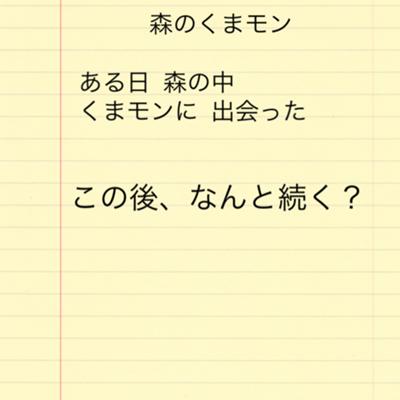 森のくまモン
ある日 森の中
くまモンに 出会った
この後、なんと続く？